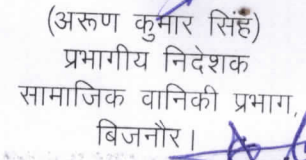 (अरूण कुमार सिंह)
प्रभागीय निदेशक
सामाजिक वानिकी प्रभाग,
बिजनौर।